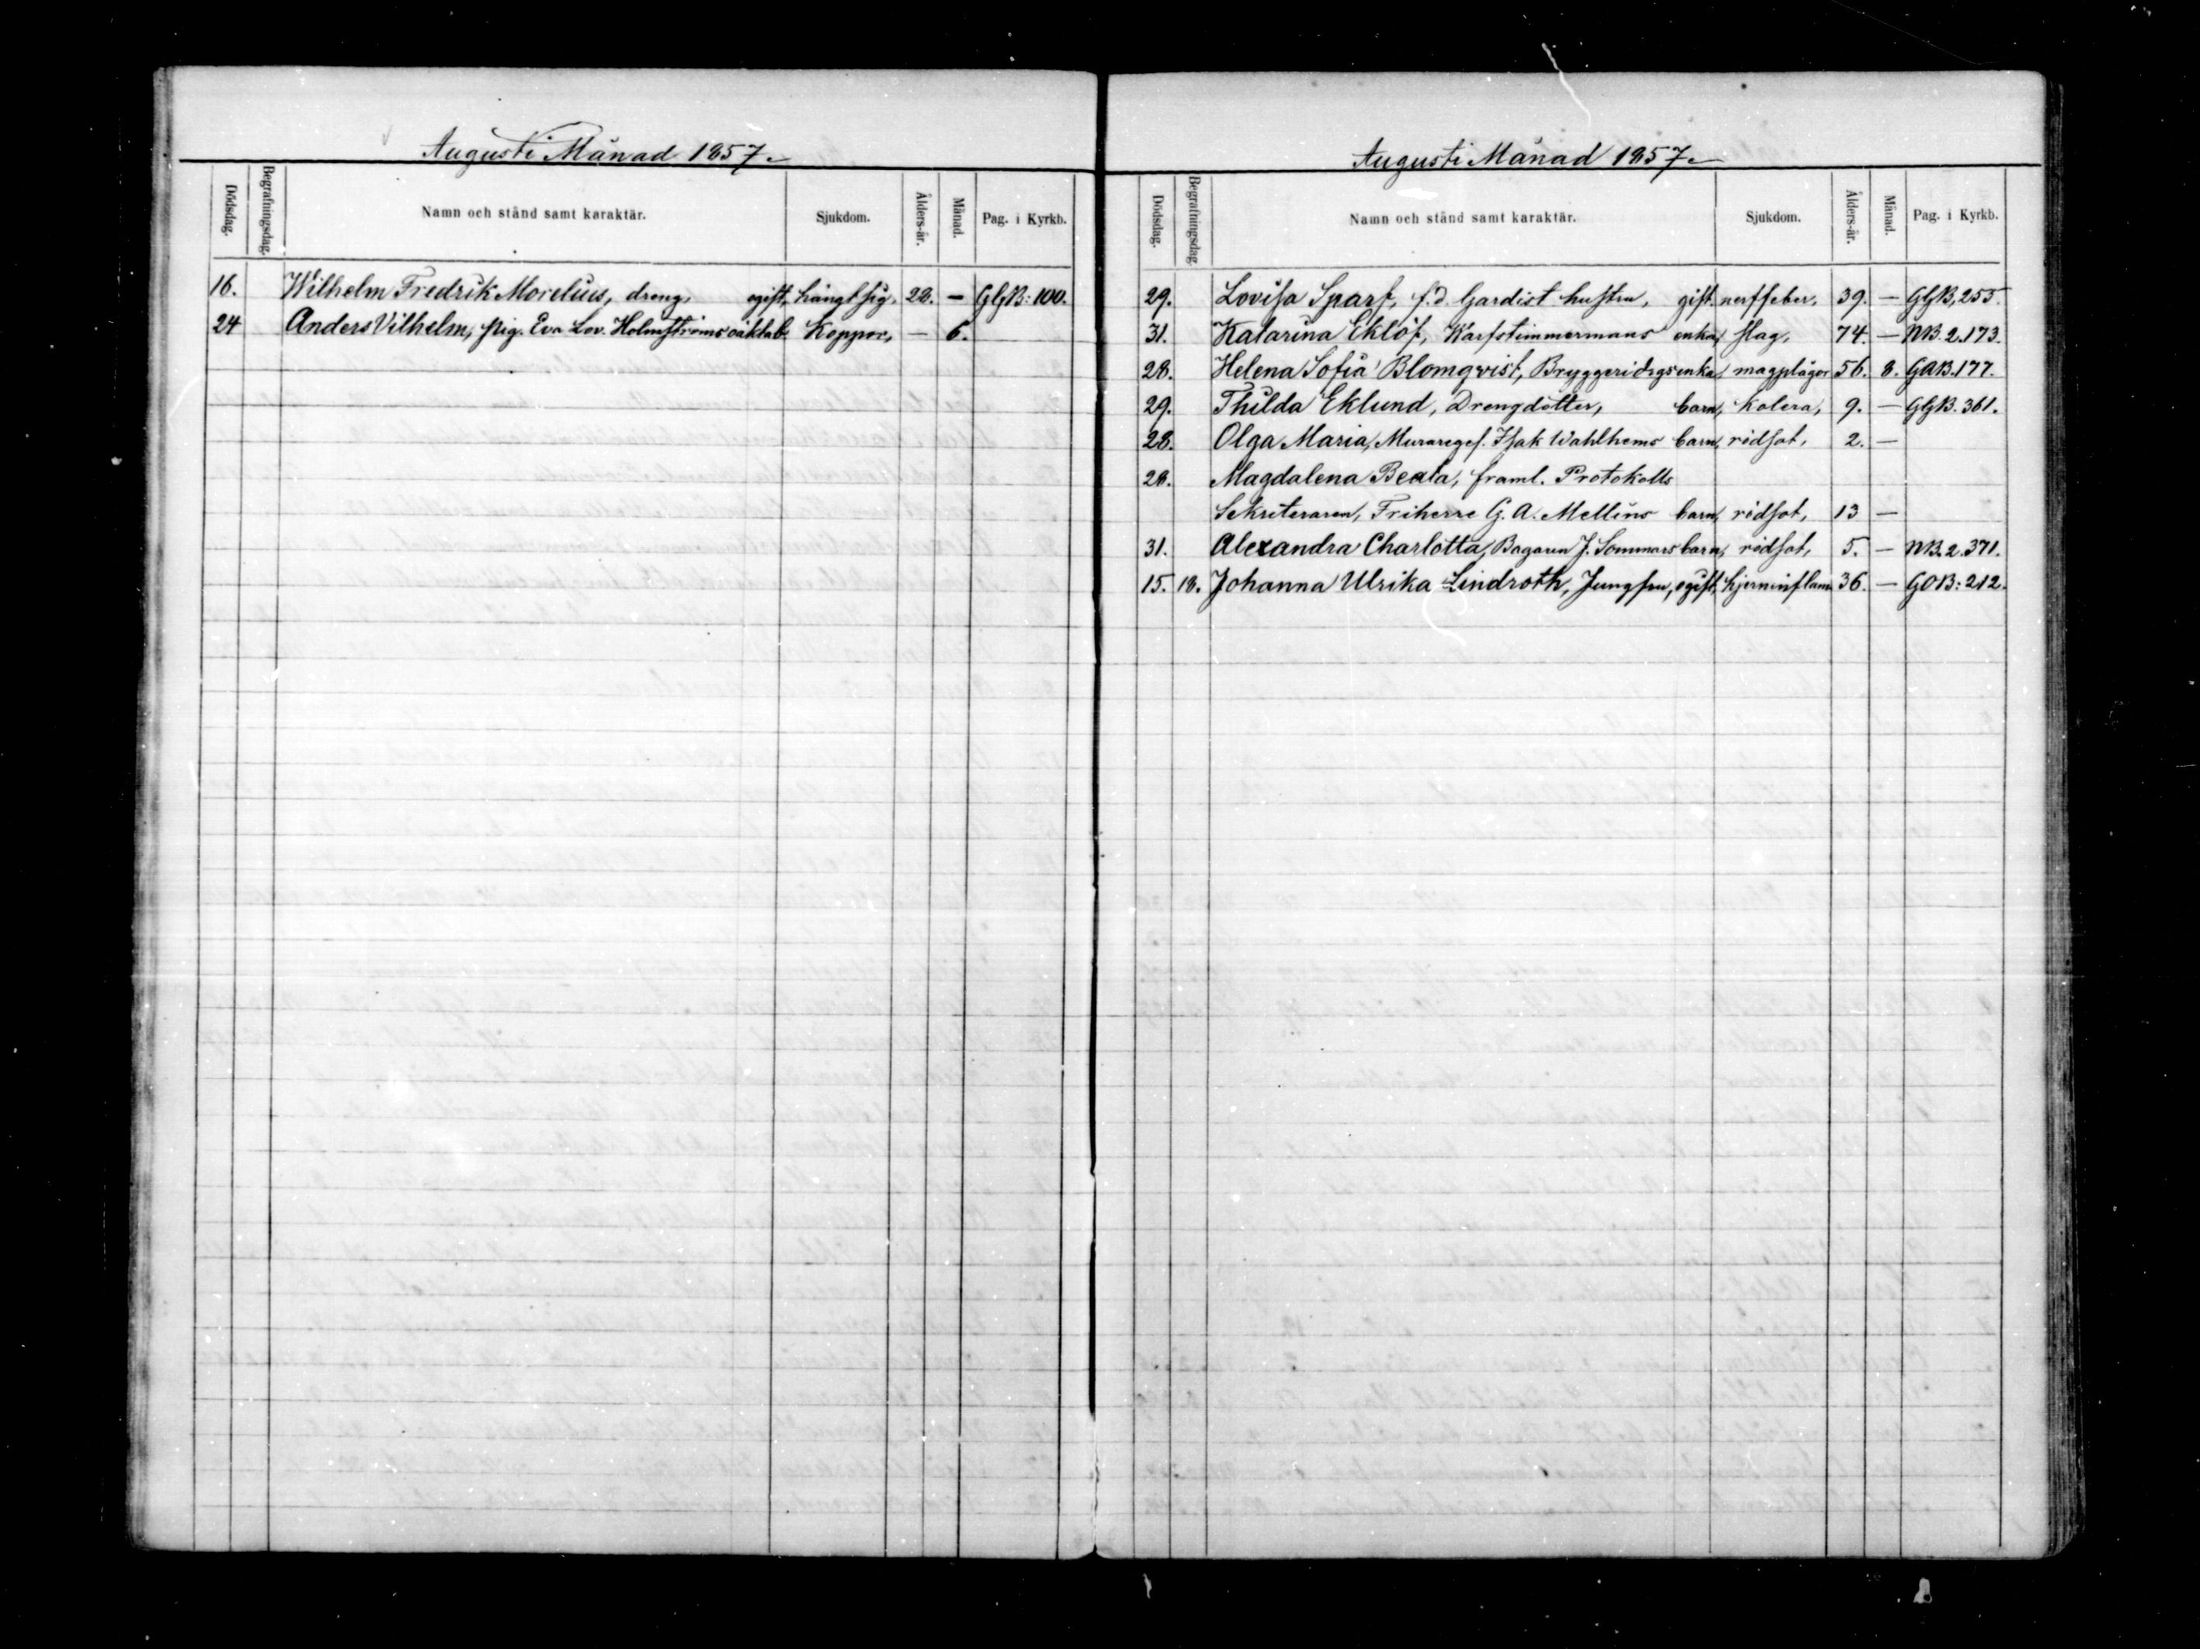 Augusti Månad 1857.
Dödsdag. Begrafningsdag. Namn och stånd samt karaktär. Sjukdom. Ålders-år. Månad. Pag. i Kyrkb.
16. Wilhelm Fredrik Morelius, dreng, ogift, hängt sig, 28. — GGB: 100.
24 Anders Vilhelm, pig. Eva Lov. Holmströms oäkta b. Koppor, — 6.
Augusti Månad 1857.
Dödsdag. Begrafningsdag. Namn och stånd samt karaktär. Sjukdom. Ålders-år. Månad. Pag. i Kyrkb.
29. Lovisa Sparf, f.d. Gardist hustru, gift. nerffeber, 39. — GGB, 255.
31. Katarina Eklöf, Varfstimmermans enka, slag, 74. — NB. 2. 173.
28. Helena Sofia Blomqvist, Bryggeridrgs enka, magplågor 56. 8. GAB. 177.
29. Thilda Eklund, Drengdotter, barn, kolera, 9. — GGB. 361.
28. Olga Maria, Murareges. Isak Wahlhems barn, rödsot, 2. —
28. Magdalena Beata, framl. Protokolls
Sekriteraren, Friherre G. A. Mellins barn, rödsot, 13 —
31. Alexandra Charlotta, Bagaren J. Sommars barn, rödsot, 5. — NB. 2. 371.
15. 18. Johanna Ulrika Lindroth, Jungfru, ogift, hjerninflam 36. — GOB: 212.